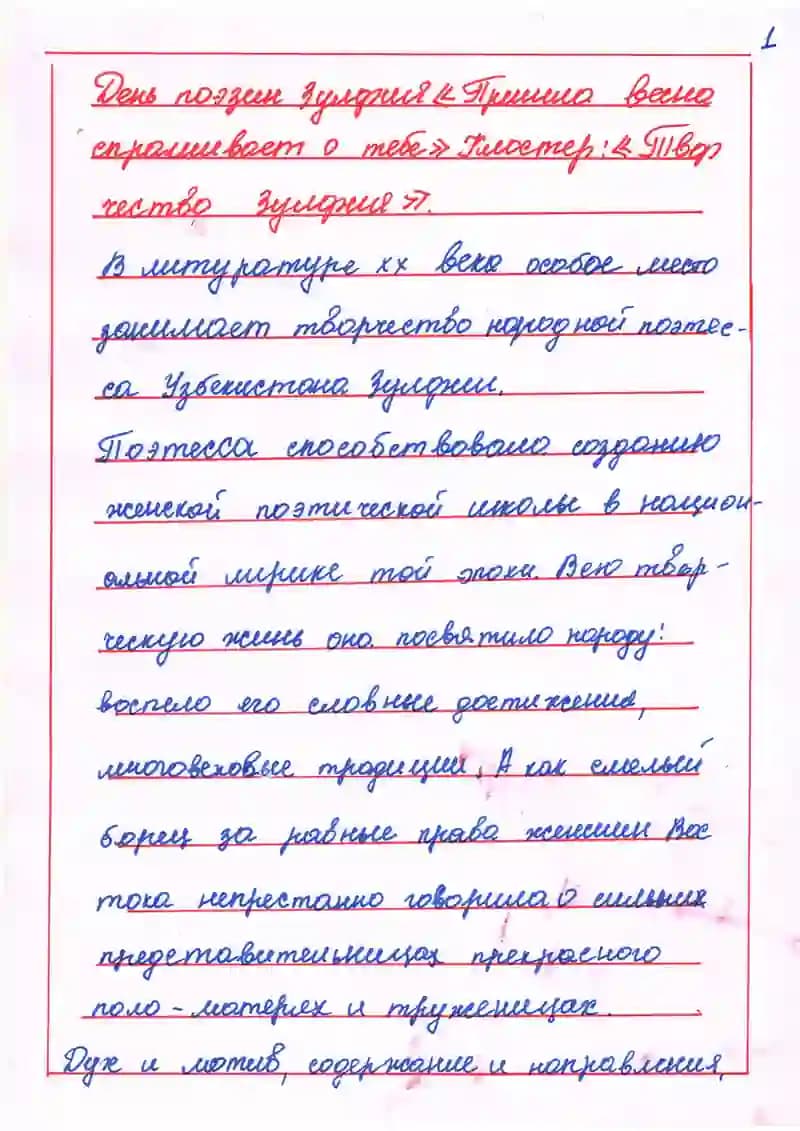 1
День поэзии Зулфия « Пришла весна
спрашивает о тебе» Кластер: « Твор
чество Зулфия».
В литуратуре xx века особое место
занимает творчество народной поэтес-
са Узбекистана Зулфии.
Поэтесса способствовала созданию
женской поэтической школы в национ-
альной лирике той эпохи. Всю твор-
ческую жинь она посвятила народу:
воспела его славные достижения,
многовековые традиции. А как смелый
борец за равные права женшин Вос
тока непрестанно говорила о сильных
представительницах прекрасного
пола - матерях и труженицах.
Дух и мотив, содержание и направления,